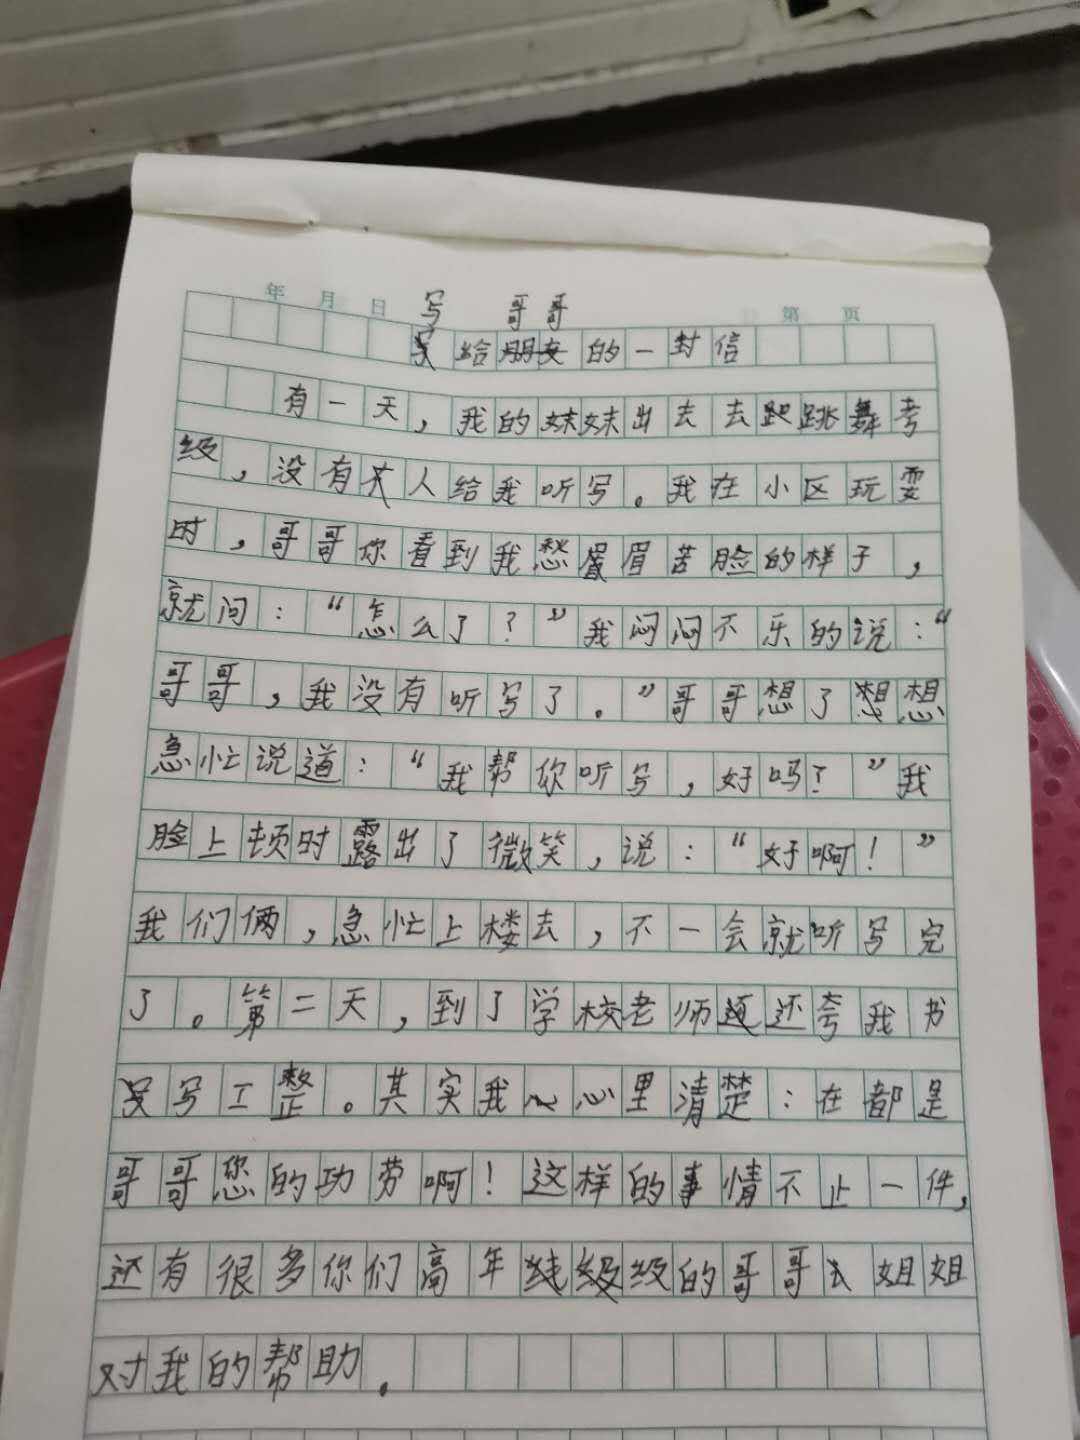 年 月 日 第 页
写 哥哥
给朋友的一封信
有一天，我的妹妹出去去跳舞考
级，没有大人给我听写。我在小区玩耍
时，哥哥你看到我愁眉眉苦脸的样子，
就问：“怎么了？”我闷闷不乐的说：“
哥哥，我没有听写了。”哥哥想了想想
急忙说道：“我帮你听写，好吗？”我
脸上顿时露出了微笑，说：“好啊！”
我们俩，急忙上楼去，不一会就听写完
了。第二天，到了学校老师还夸我书
写工整。其实我心里清楚：在都是
哥哥您的功劳啊！这样的事情不止一件，
还有很多你们高年级级的哥哥姐姐
对我的帮助。